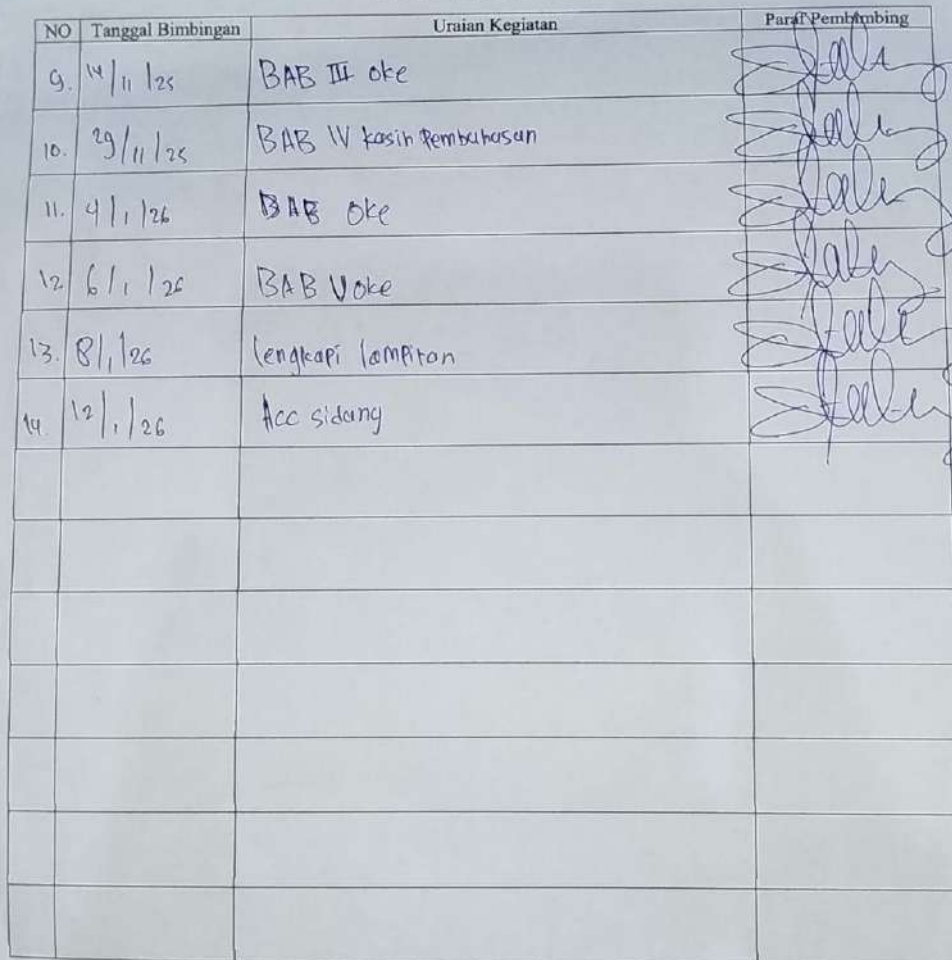 NO Tanggal Bimbingan Uraian Kegiatan Paraf Pembimbing
9. 14/11/25 BAB III oke
10. 29/11/25 BAB IV kasih Pembahasan
11. 4/1/26 BAB oke
12 6/1/26 BAB V oke
13. 8/1/26 lengkapi lampiran
14. 12/1/26 Acc sidang